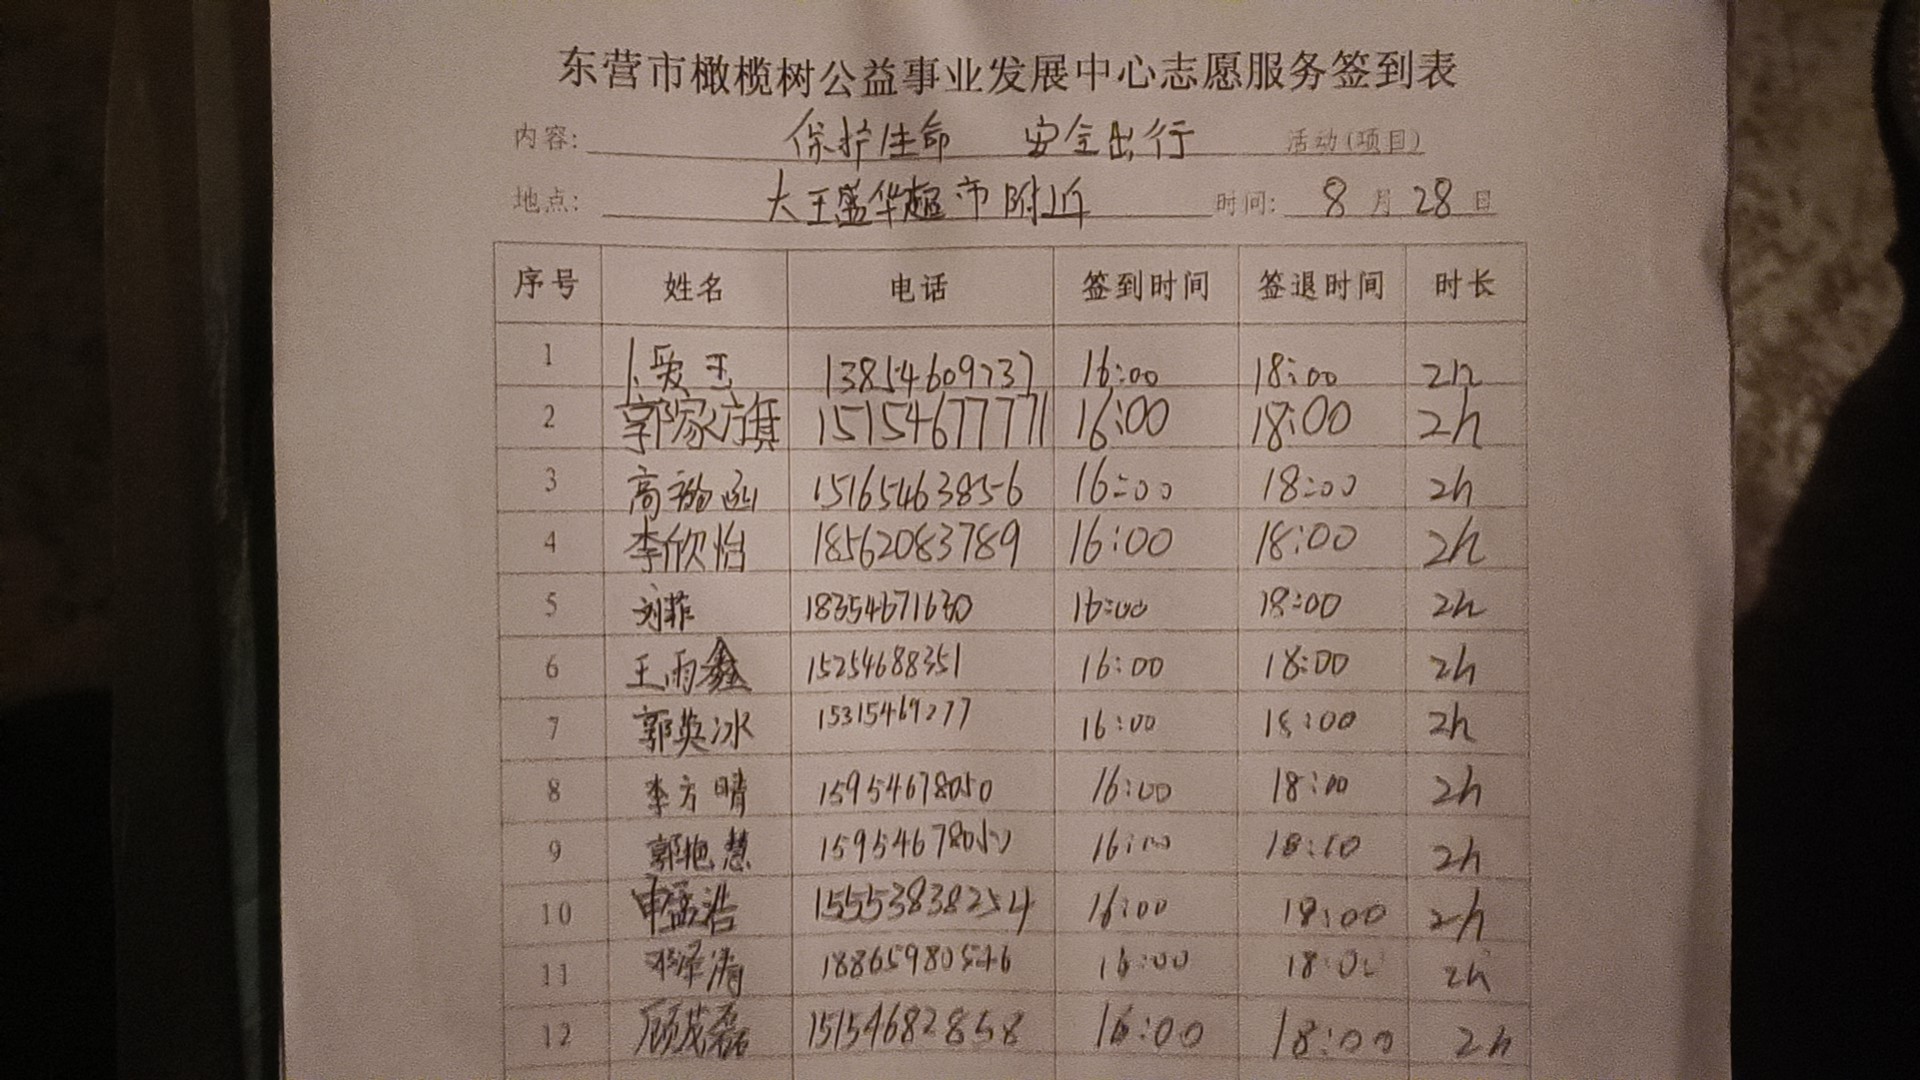 东营市橄榄树公益事业发展中心志愿服务签到表
内容: 保护生命 安全出行 活动(项目)
地点: 大王盛华超市附近 时间: 8月28日
序号 姓名 电话 签到时间 签退时间 时长
1 卜爱玉 13854609237 16:00 18:00 2h
2 郭家旗 15154677771 16:00 18:00 2h
3 高 函 15165463856 16:00 18:00 2h
4 李欣怡 18562083789 16:00 18:00 2h
5 刘菲 18354671630 16:00 18:00 2h
6 王雨鑫 15254688351 16:00 18:00 2h
7 郭英冰 15315469277 16:00 18:00 2h
8 李方晴 15954678050 16:00 18:00 2h
9 郭艳慧 16:00 18:00 2h
10 申孟浩 15553838254 16:00 18:00 2h
11 18865980546 16:00 18:00 2h
12 顾茂磊 15154682858 16:00 18:00 2h